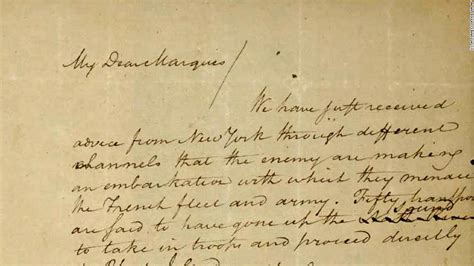 My Dear Marquis/
We have just received
advice from New York through different
channels that the enemy are making
an embarkation with which they menace
the French fleet and army. Fifty
are said to have gone up the sound
to take in troops and proceed directly